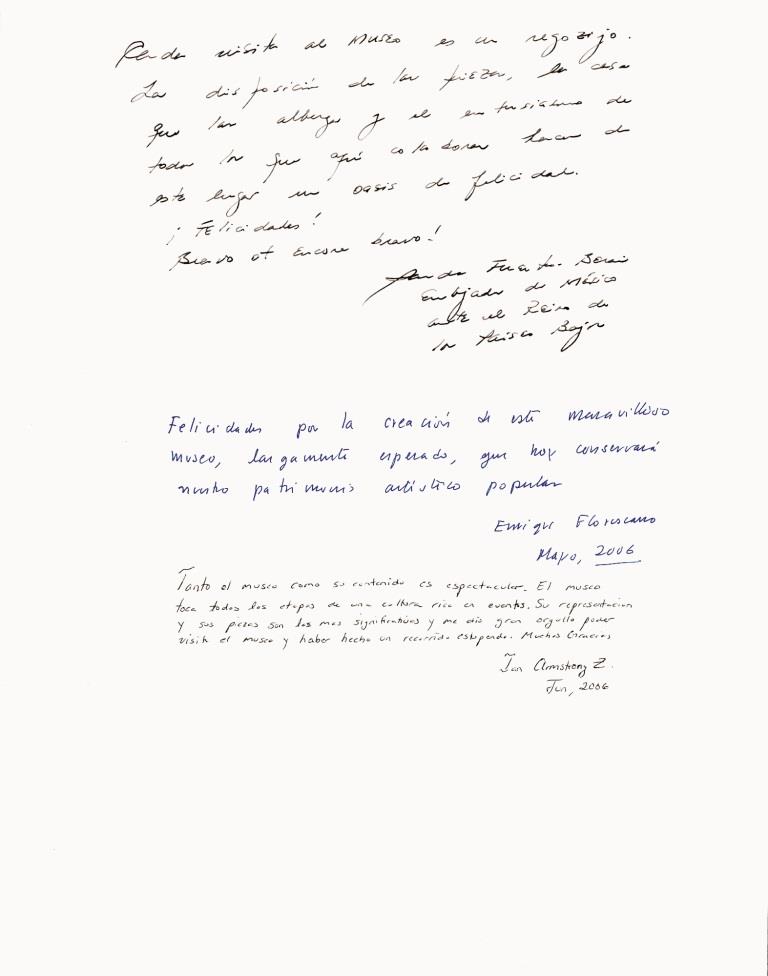 Cada visita al Museo es un regozijo.
La disposición de las piezas, la casa
que las alberga y el entusiasmo de
todos los que aquí colaboran hacen de
este lugar un oasis de felicidad.
¡Felicidades!
Bravo et encore bravo!
Fuentes
Embajador de México
ante el Reino de
los Países Bajos
Felicidades por la creación de este maravilloso
museo, largamente esperado, que hoy conservará
nuestro patrimonio artístico popular
Enrique Florescano
Mayo, 2006
Tanto el museo como su contenido es espectacular. El museo
toca todas las etapas de una cultura rica en eventos. Su representacion
y sus piezas son las mas significativas y me dio gran orgullo poder
visitar el museo y haber hecho un recorrido estupendo. Muchas Gracias
Ian Armstrong Z.
Jun, 2006